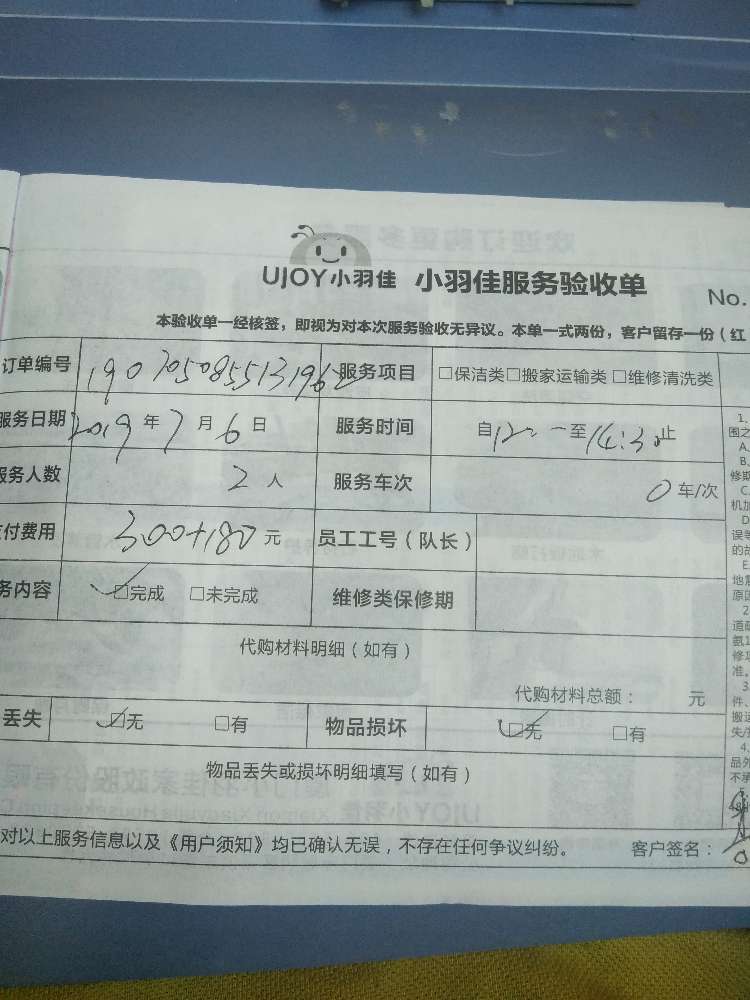 UJOY小羽佳 小羽佳服务验收单
No.
本验收单一经核签，即视为对本次服务验收无异议。本单一式两份，客户留存一份（红
订单编号 190705085513196 服务项目 □保洁类□搬家运输类 □维修清洗类
服务日期 2019 年 7 月 6 日 服务时间 自 至 14:30 止
服务人数 2 人 服务车次 0 车/次
付费用 300+180 元 员工工号（队长）
务内容 □完成 □未完成 维修类保修期
代购材料明细（如有）
代购材料总额： 元
丢失 □无 □有 物品损坏 □无 □有
物品丢失或损坏明细填写（如有）
对以上服务信息以及《用户须知》均已确认无误，不存在任何争议纠纷。 客户签名：
1.
围之
A.
B.
修期
C
机加
D
误等
的故
E.
地震
原因
2
道
氨1
修
准。
3
件、
搬运
失/
4.
品外
不承